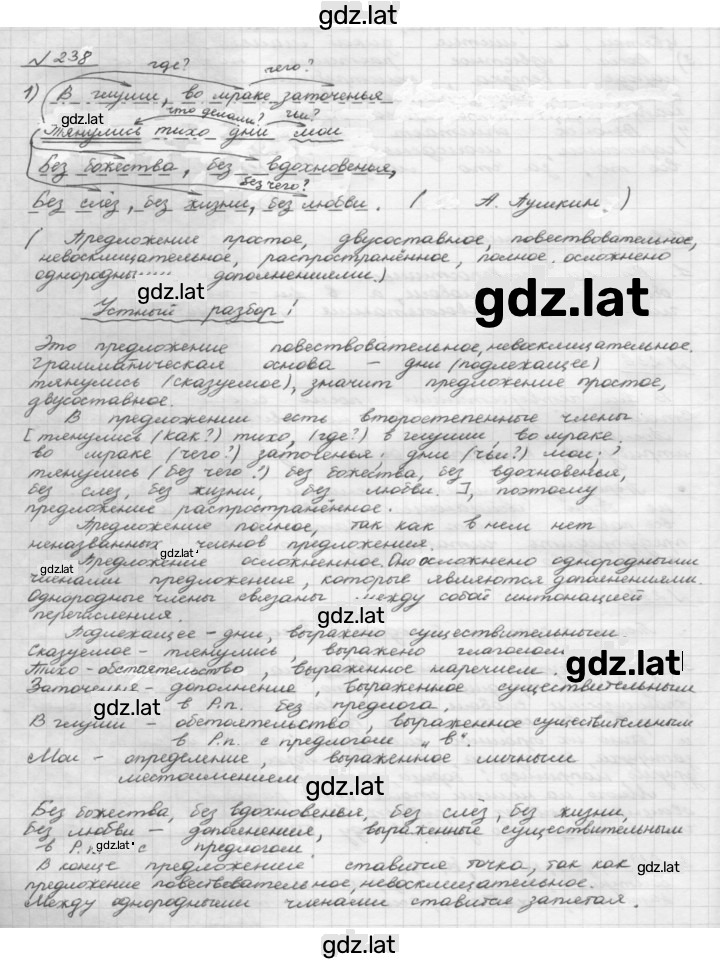 gdz.lat
N 238
где? чего?
1) В глуши, во мраке заточенья
gdz.lat что делали? чьи?
Тянулись тихо дни мои
Без божества, без вдохновенья,
без чего?
Без слёз, без жизни, без любви. ( А. Пушкин. )
( Предложение простое, двусоставное, повествовательное,
невосклицательное, распространённое, полное. осложнено
однородны дополнениями.)
gdz.lat
gdz.lat
Устный разбор!
Это предложение повествовательное, невосклицательное.
Грамматическая основа – дни (подлежащее)
тянулись (сказуемое), значит предложение простое,
двусоставное.
В предложении есть второстепенные члены
[тянулись (как?) тихо, (где?) в глуши, во мраке;
во мраке (чего?) заточенья; дни (чьи?) мои;
тянулись (без чего?) без божества, без вдохновенья,
без слез, без жизни, без любви. ], поэтому
предложение распространённое.
Предложение полное, так как в нем нет
неназванных членов предложения.
gdz.lat
Предложение осложненное. Оно осложнено однородными
gdz.lat
членами предложения, которые являются дополнениями.
Однородные члены связаны между собой интонацией
gdz.lat
перечисления.
Подлежащее – дни, выражено существительным.
Сказуемое – тянулись, выражено глаголом
gdz.lat
Тихо – обстоятельство, выраженное наречием.
Заточения – дополнение, выраженное существительным
gdz.lat
в Р.п. без предлога.
В глуши – обстоятельство, выраженное существительным
в Р.п. с предлогом „в“.
Мои – определение, выраженное личным
местоимением
gdz.lat
Без божества, без вдохновенья, без слёз, без жизни,
Без любви – дополнения, выраженные существительным
в Р.п. с предлогом.
gdz.lat
В конце предложения ставится точка, так как
gdz.lat
предложение повествовательное, невосклицательное.
Между однородными членами ставится запятая.
gdz.lat